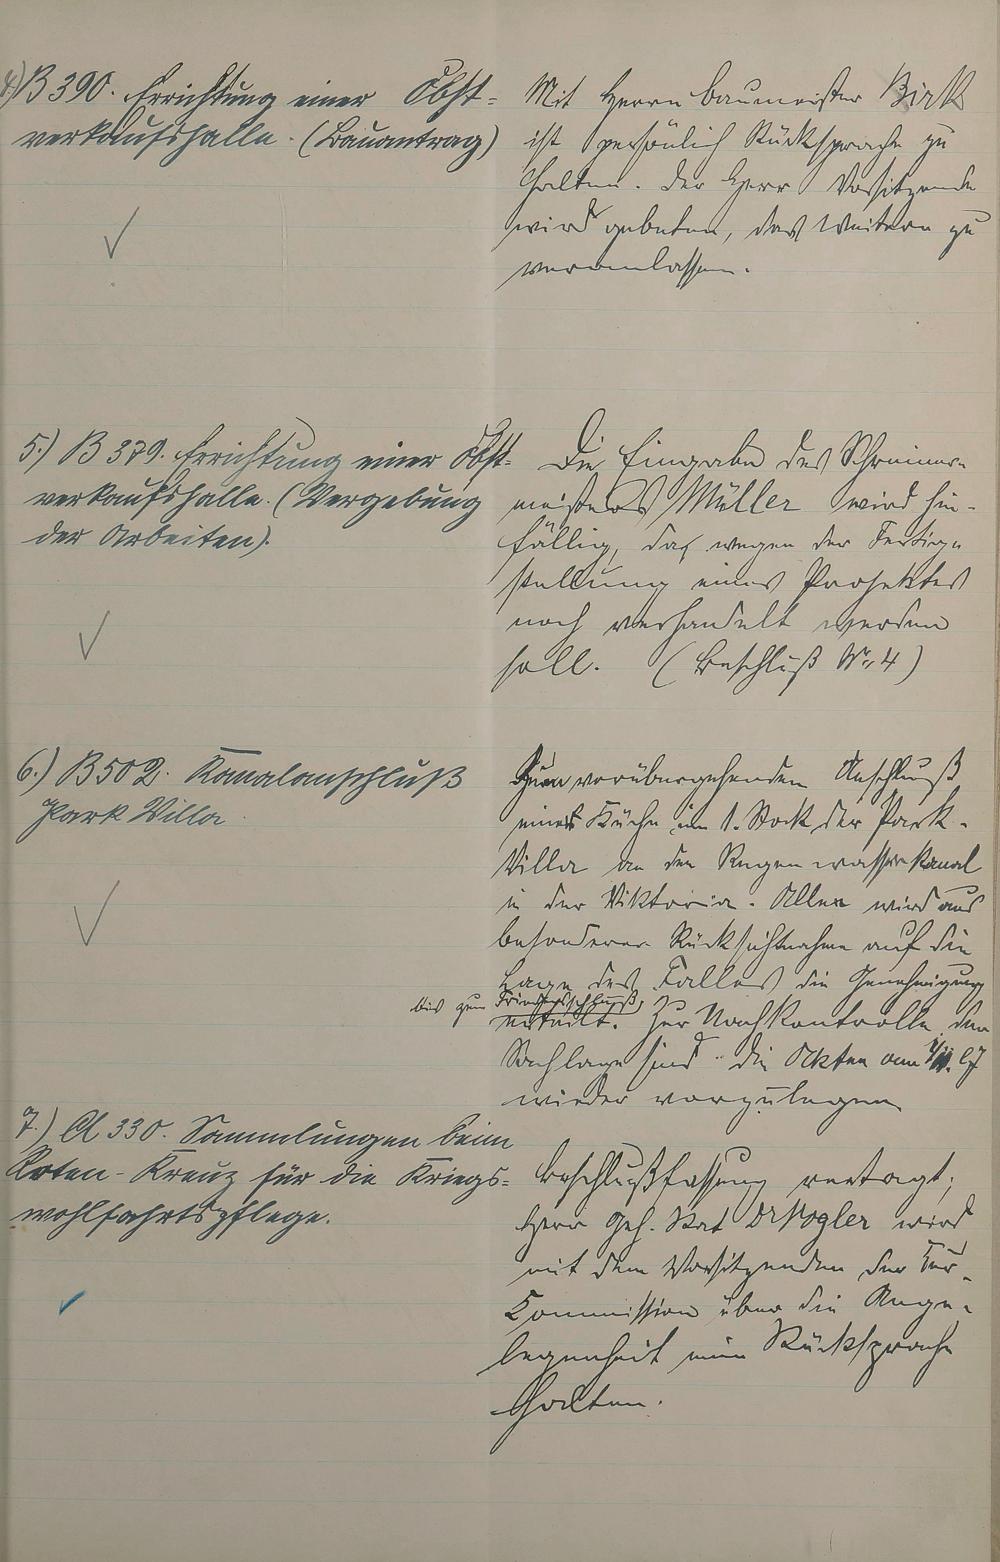 4.) B 390. Errichtung einer Obst-
verkaufshalle. (Bauantrag)
Mit Herrn Baumeister Birk
ist persönlich Rücksprache zu
halten. Der Herr Vorsitzende
wird gebeten, das Weitere zu
veranlassen.
5.) B 379. Errichtung einer Obst-
verkaufshalle. (Vergebung
der Arbeiten).
Die Eingabe des Schreiner-
meisters Müller wird hin-
fällig, da wegen der Fertig-
stellung eines Projektes
noch verhandelt werden
soll. (Beschluß Nr. 4)
6.) B 502. Kanalanschluß
Park Villa
Zum vorübergehenden Anschluß
einer Küche im 1. Stock der Park-
Villa an den Regenwasserkanal
in der Viktoria-Allee wird aus
besonderer Rücksichtnahme auf die
Lage des Falles die Genehmigung
bis zum Friedensschluß
erteilt. Zur Nachkontrolle der
Sachlage sind die Akten am
wieder vorzulegen
7.) A 330. Sammlungen beim
Roten-Kreuz für die Kriegs-
wohlfahrtspflege.
Beschlußfassung vertagt;
Herr Geh. Rat Dr Vogler wird
mit dem Vorsitzenden der Kur-
Commission über die Ange-
legenheit eine Rücksprache
halten.